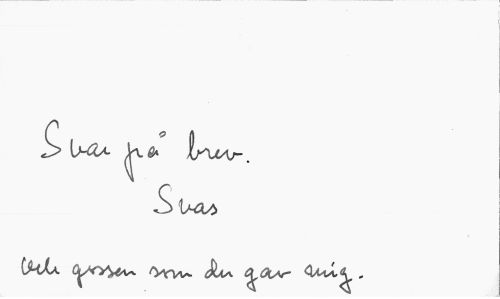 Svar på brev.
Svas
och gossen som du gav mig.